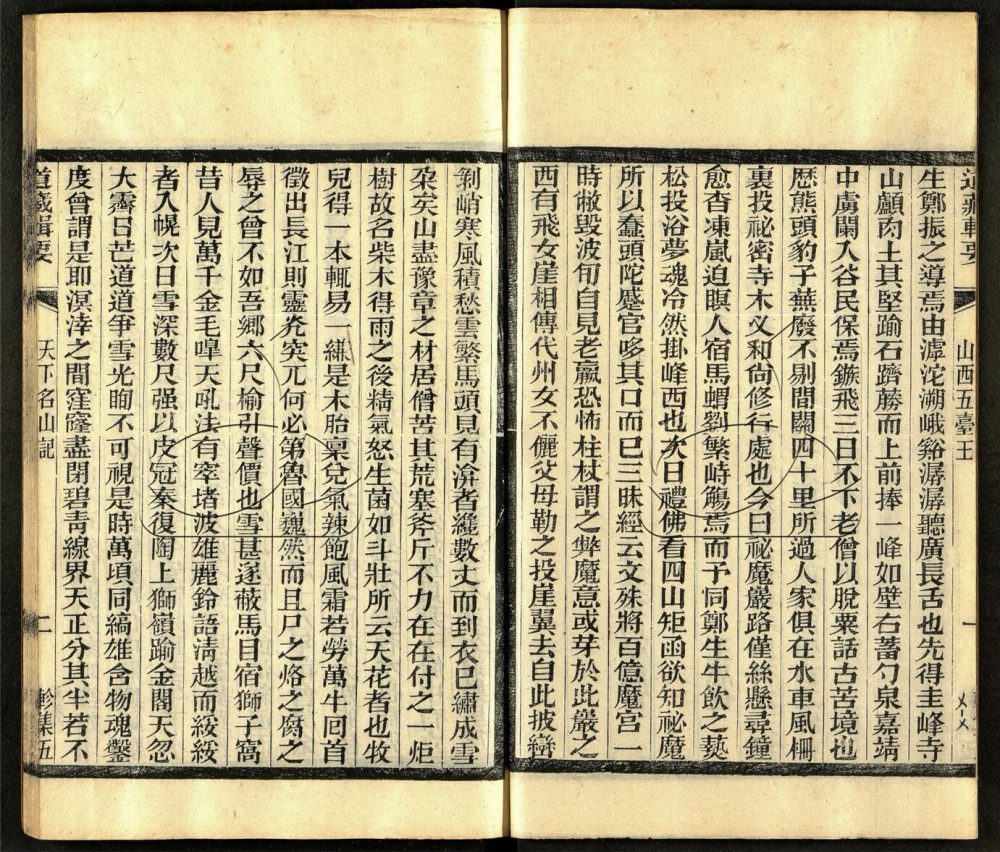 道藏輯要
山西五臺王
一
生鄭振之導焉由滹沱溯峨谿潺潺聽廣長舌也先得圭峰寺
山顱肉土其堅踰石躋蕂而上前捧一峰如壁右蓄勺泉嘉靖
中虜闌入谷民保焉鏃飛三日不下老僧以脫粟話古苦境也
歷熊頭豹子蕪廢不剔間關四十里所過人家俱在水車風柵
裏投祕密寺木义和尙修行處也今曰祕魔嚴路僅絲懸尋鐘
愈杳凍嵐迫瞑人宿馬蝟劉繁峙觴焉而予同鄭生牛飲之蓺
松投浴夢魂冷然掛峰西也次日禮佛看四山矩函欲知祕魔
所以蠢頭陀蹙官哆其口而巳三昧經云文殊將百億魔宫一
時敝毀波旬自見老羸恐怖柱杖謂之弊魔意或芽於此嚴之
西有飛女崖相傳代州女不儷父母勒之投崖翼去自此披巒
剝峭寒風積愁雲繄馬頭見有渰者纔數丈而到衣巳繡成雪
朶矣山盡豫章之材居僧苦其荒塞斧斤不力在在付之一炬
樹故名柴木得雨之後精氣怒生菌如斗壯所云天花者也牧
兒得一本輒易一縑是木胎稟兌氣辣飽風霜若勞萬牛回首
徵出長江則靈光突兀何必第魯國巍然而且尸之烙之腐之
辱之曾不如吾鄉六尺榆引聲價也雪甚遂蔽馬目宿獅子窩
昔人見萬千金毛嘷天吼法有窣堵波雄麗鈴語淸越而綏綏
者入幌次日雪深數尺强以皮冠秦復陶上獅嶺踰金閣天忽
大霽日芒道道爭雪光眴不可視是時萬頃同縞雄含物魂鑿
度曾謂是耶溟涬之間窪窿盡閉碧靑線界天正分其半若不
道藏輯要
天下名山記
二
軫集五